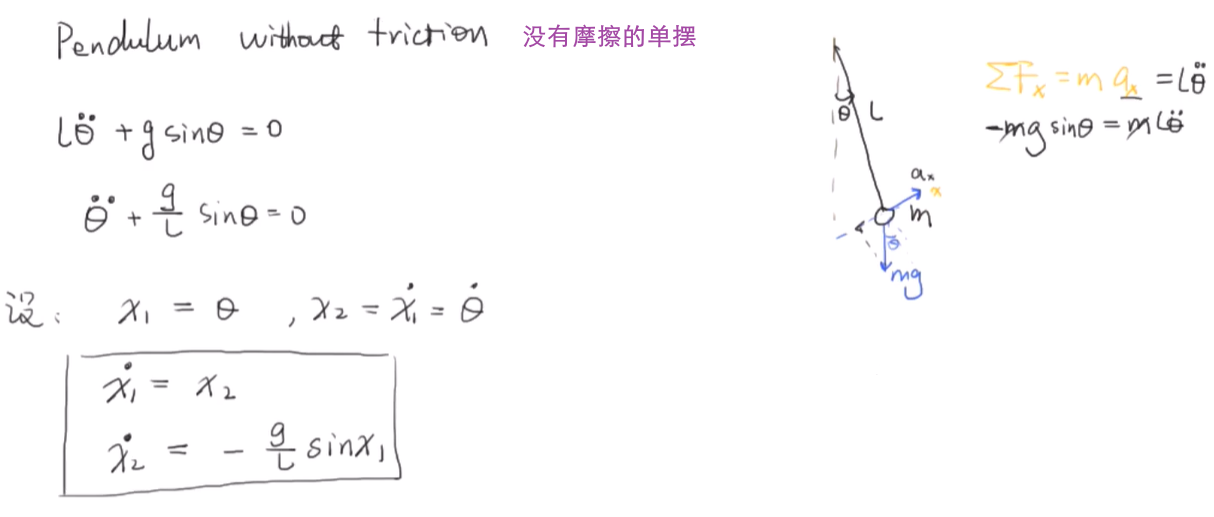 Pendulum without friction 没有摩擦的单摆
Lθ̈ + g sinθ = 0
θ̈ + g/L sinθ = 0
设: x₁ = θ , x₂ = ẋ₁ = θ̇
ẋ₁ = x₂
ẋ₂ = - g/L sinx₁
θ L
aₓ
x
m
θ
mg
ΣFₓ = m aₓ = Lθ̈
-mg sinθ = mLθ̈